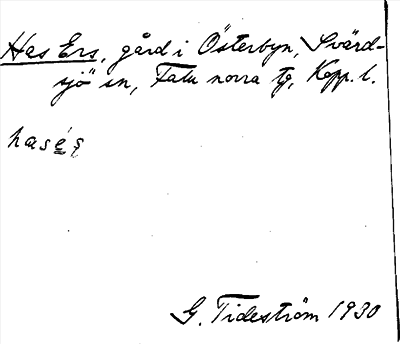 Has Ers, gård i Österbyn, Svärd-
sjö sn, Falu norra tg, Kopp. l.
G. Tideström 1930